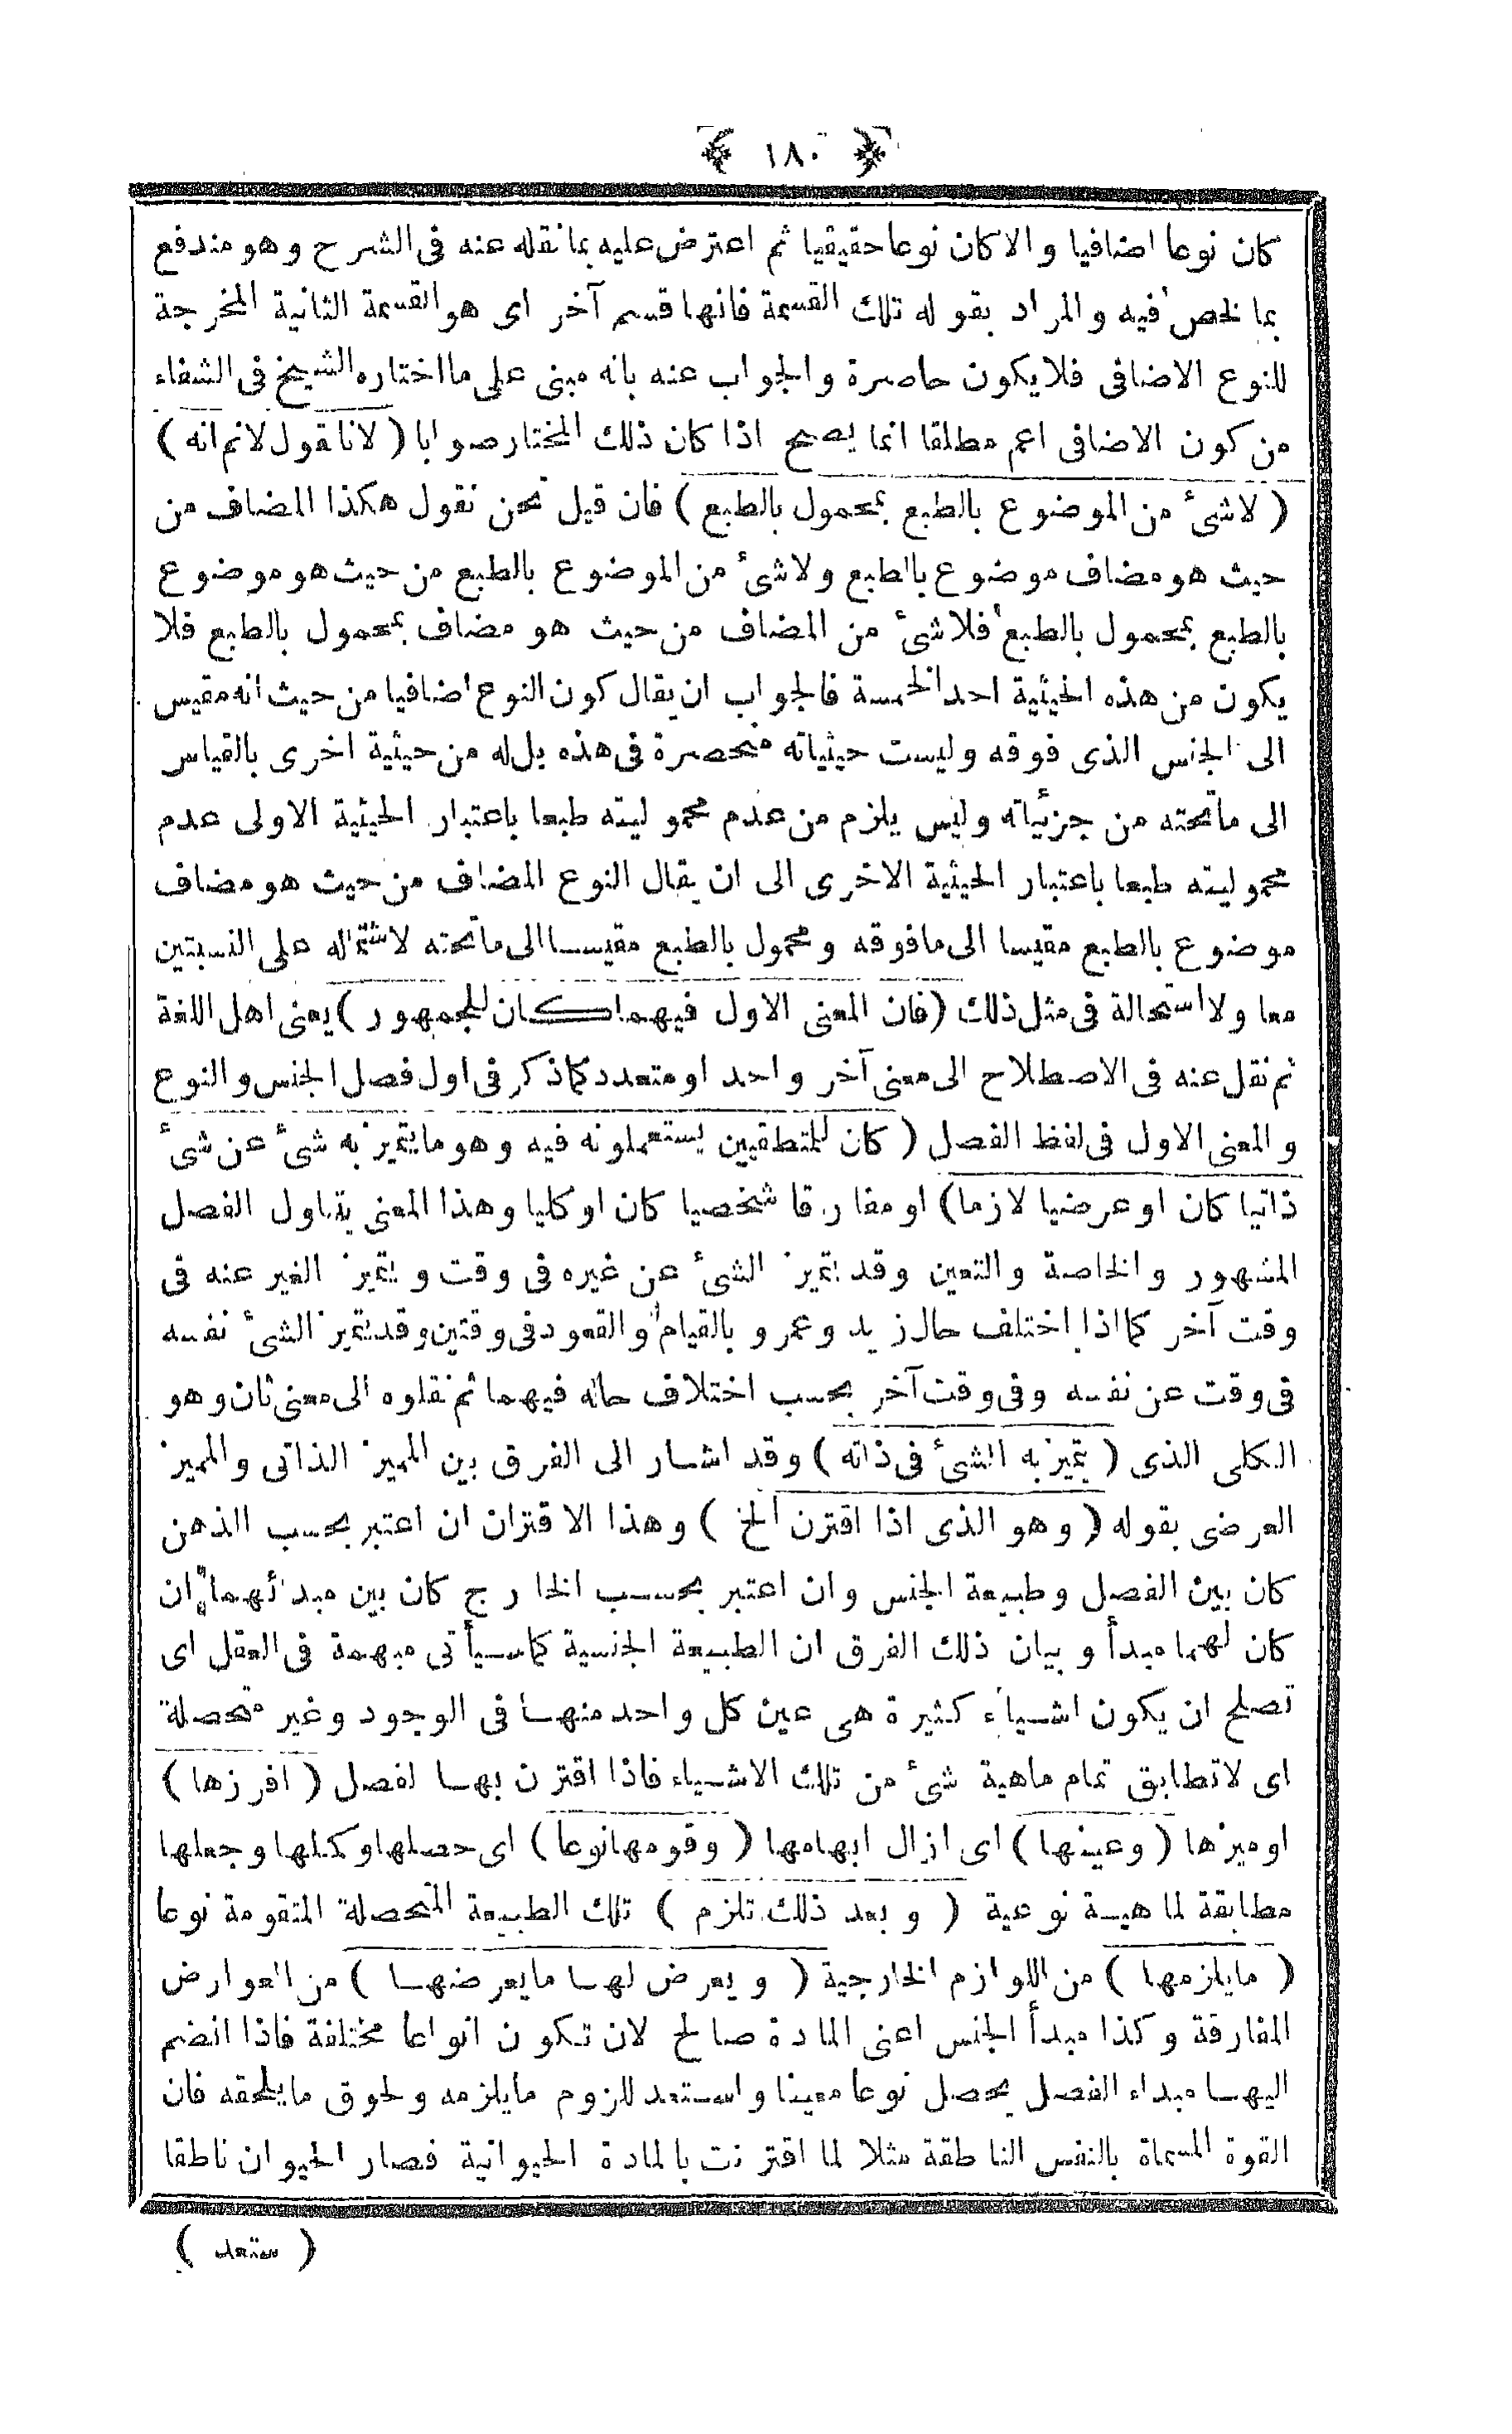 ﴿ ١٨٠ ﴾
كان نوعا اضافيا والا كان نوعا حقيقيا ثم اعترض عليه بما نقله عنه فى الشرح وهو مندفع
بما لخص فيه والمراد بقوله تلك القسمة فانها قسم آخر اى هو القسمة الثانية المخرجة
للنوع الاضافى فلا يكون حاصرة والجواب عنه بانه مبنى على ما اختاره الشيخ فى الشفاء
من كون الاضافى اعم مطلقا انما يصح اذا كان ذلك المختار صوابا (لانا نقول لانم انه)
(لا شئ من الموضوع بالطبع بمحمول بالطبع) فان قيل نحن نقول هكذا المضاف من
حيث هو مضاف موضوع بالطبع ولا شئ من الموضوع بالطبع من حيث هو موضوع
بالطبع بمحمول بالطبع فلا شئ من المضاف من حيث هو مضاف بمحمول بالطبع فلا
يكون من هذه الحيثية احد الخمسة فالجواب ان يقال كون النوع اضافيا من حيث انه مقيس
الى الجنس الذى فوقه وليست حيثياته منحصرة فى هذه بل له من حيثية اخرى بالقياس
الى ما تحته من جزئياته وليس يلزم من عدم محموليته طبعا باعتبار الحيثية الاولى عدم
محموليته طبعا باعتبار الحيثية الاخرى الى ان يقال النوع المضاف من حيث هو مضاف
موضوع بالطبع مقيسا الى ما فوقه ومحمول بالطبع مقيسا الى ما تحته لاشتماله على النسبتين
معا ولا استحالة فى مثل ذلك (فان المعنى الاول فيهما كان للجمهور) يعنى اهل اللغة
ثم نقل عنه فى الاصطلاح الى معنى آخر واحد او متعدد كما ذكر فى اول فصل الجنس والنوع
والمعنى الاول فى لفظ الفصل (كان للمنطقيين يستعملونه فيه وهو ما يتميز به شئ عن شئ
ذاتيا كان او عرضيا لازما) او مفارقا شخصيا كان او كليا وهذا المعنى يتناول الفصل
المشهور والخاصة والتعين وقد يتميز الشئ عن غيره فى وقت ويتميز الغير عنه فى
وقت آخر كما اذا اختلف حال زيد وعمرو بالقيام والقعود فى وقتين وقد يتميز الشئ نفسه
فى وقت عن نفسه وفى وقت آخر بحسب اختلاف حاله فيهما ثم نقلوه الى معنى ثان وهو
الكلى الذى (يتميز به الشئ فى ذاته) وقد اشار الى الفرق بين المميز الذاتى والمميز
العرضى بقوله (وهو الذى اذا اقترن الخ) وهذا الاقتران ان اعتبر بحسب الذهن
كان بين الفصل وطبيعة الجنس وان اعتبر بحسب الخارج كان بين مبدئهما ان
كان لهما مبدأ وبيان ذلك الفرق ان الطبيعة الجنسية كما سيأتى مبهمة فى العقل اى
تصلح ان يكون اشياء كثيرة هى عين كل واحد منها فى الوجود وغير متحصلة
اى لا تطابق تمام ماهية شئ من تلك الاشياء فاذا اقترن بها لفصل (افرزها)
او ميزها (وعينها) اى ازال ابهامها (وقومها نوعا) اى حصلها وكملها وجعلها
مطابقة لماهية نوعية (وبعد ذلك تلزم) تلك الطبيعة المتحصلة المتقومة نوعا
(ما يلزمها) من اللوازم الخارجية (ويعرض لها ما يعرضها) من العوارض
المفارقة وكذا مبدأ الجنس اعنى المادة صالح لان تكون انواعا مختلفة فاذا انضم
اليها مبداء الفصل يحصل نوعا معينا واستعد للزوم ما يلزمه ولحوق ما يلحقه فان
القوة المسماة بالنفس الناطقة مثلا لما اقترنت بالمادة الحيوانية فصار الحيوان ناطقا
(ستعد)